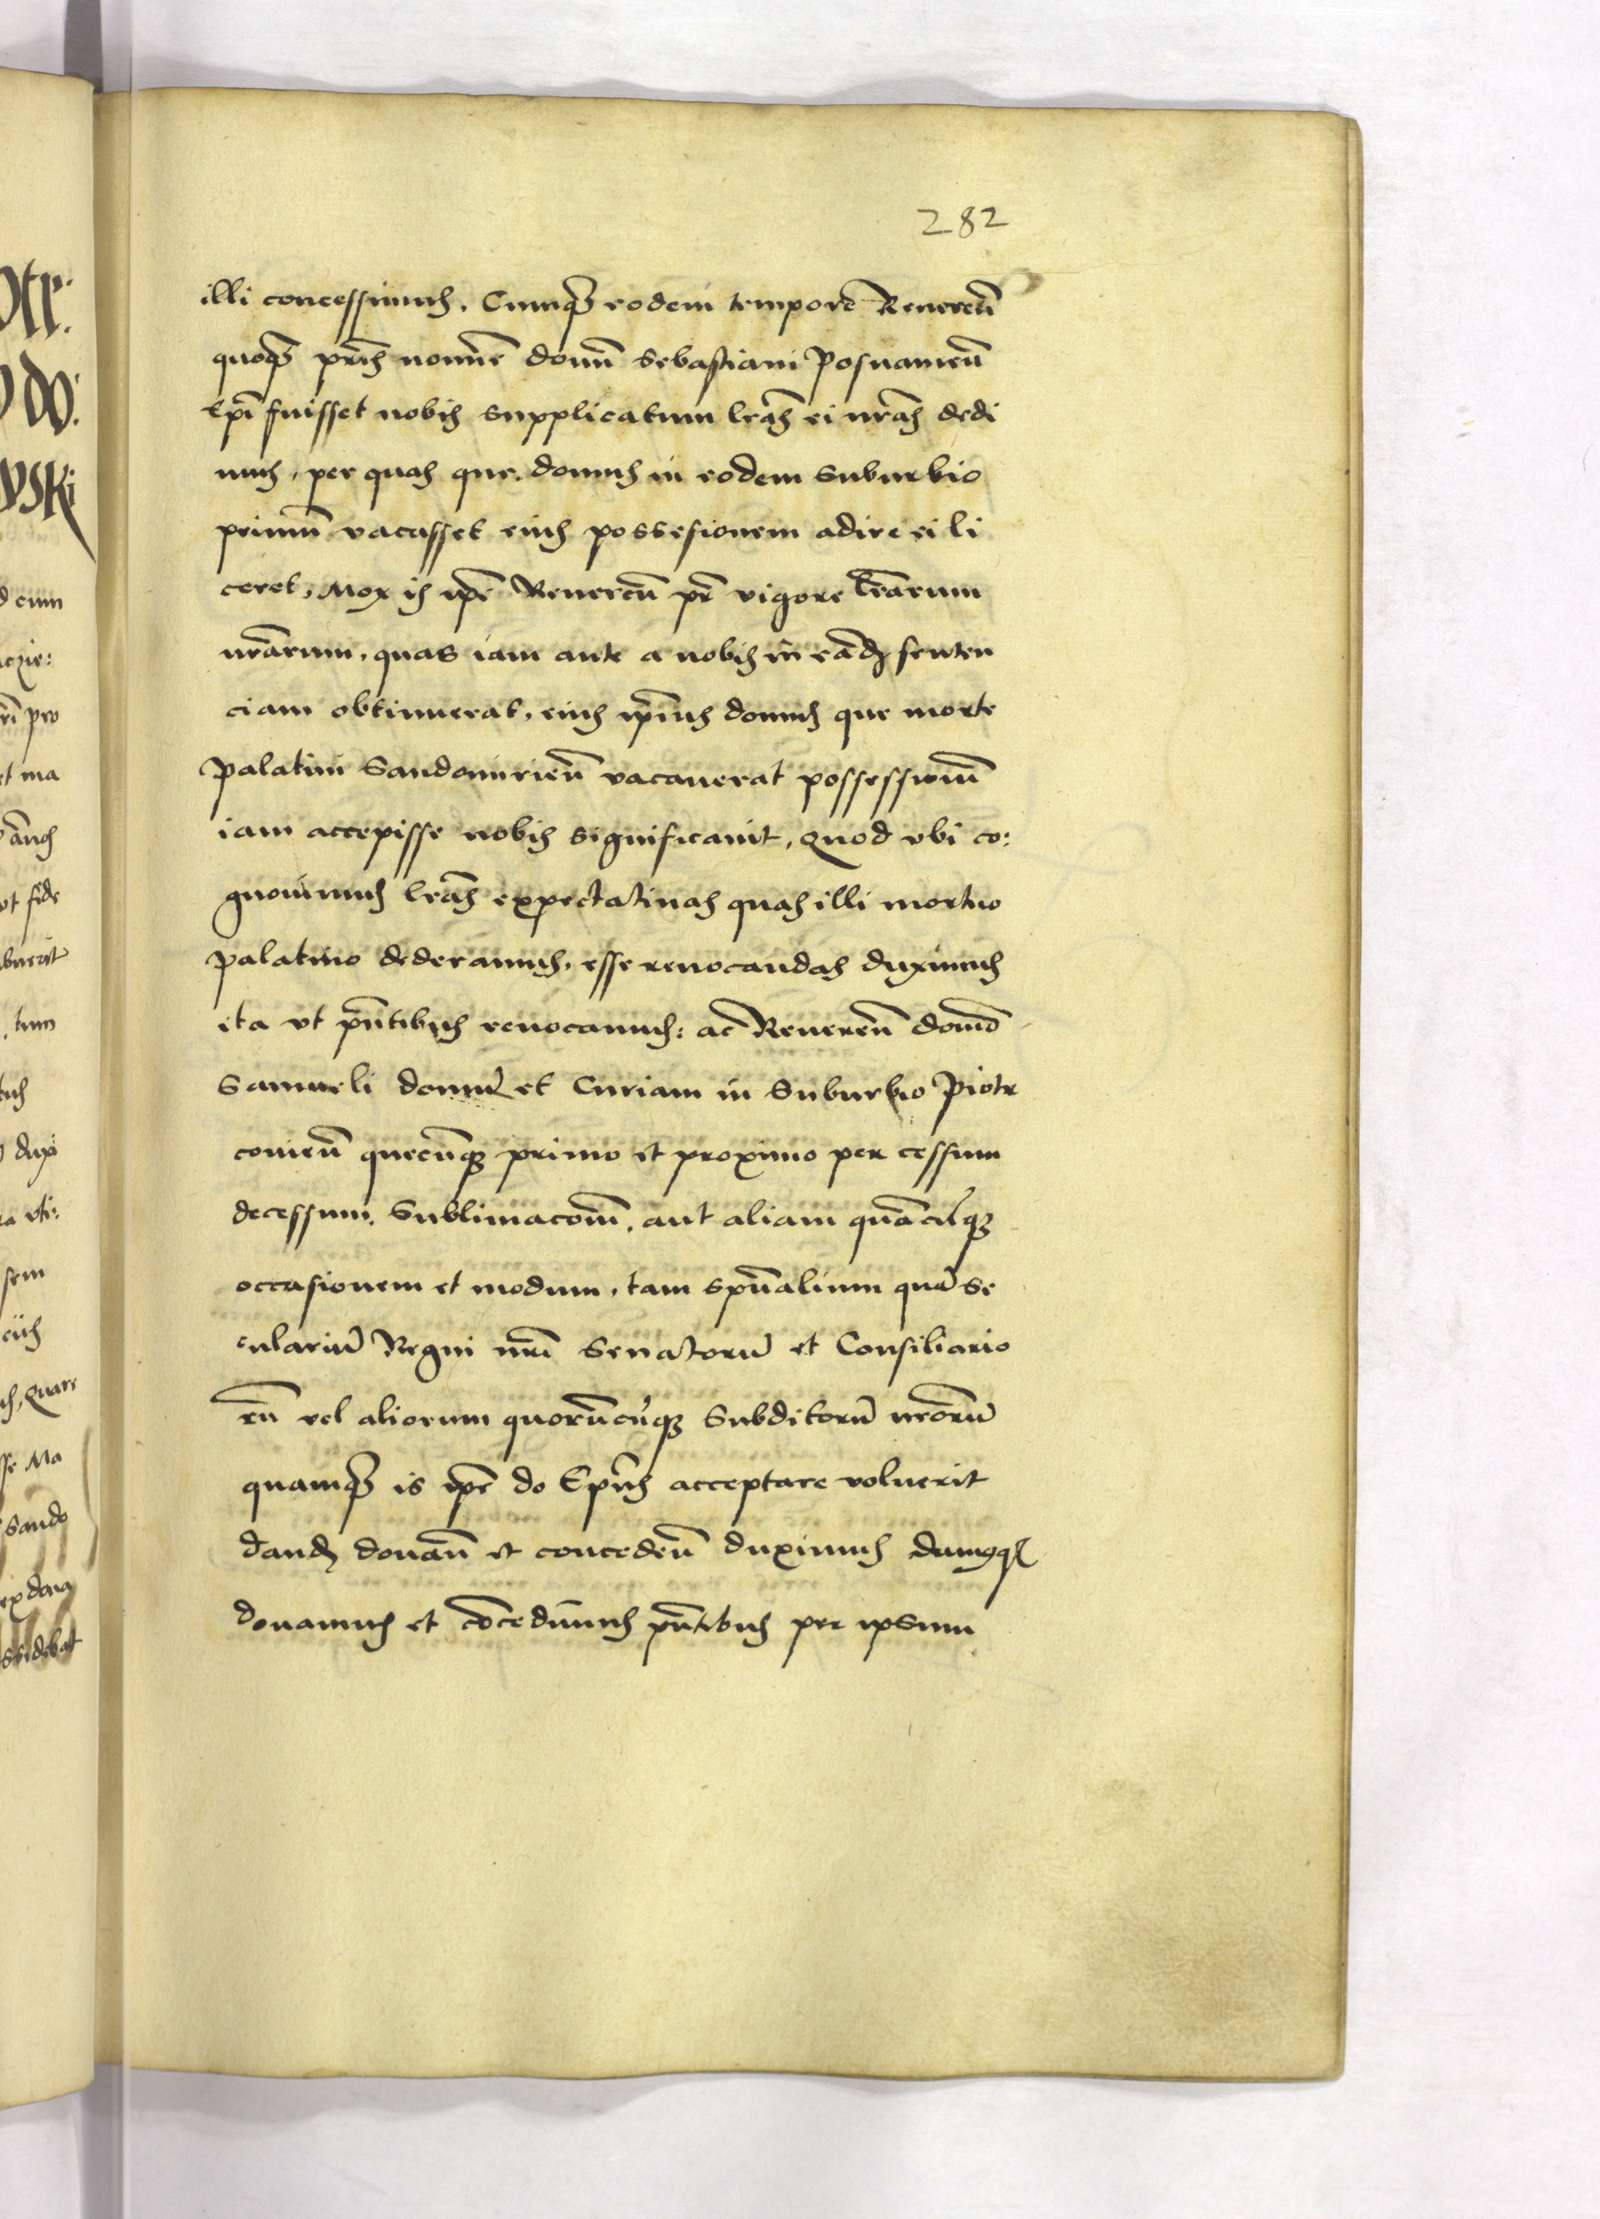 282
illi concessimus. Cumqȝ eodem tempore Reueren̄
quoqȝ pr̄is nomine domini Sebastiani Posnanien̄
Ep̄i fuisset nobis supplicatum lr̄as ei nr̄as dedi
mus, per quas que domus in eodem Suburbio
primum vacasset eius possesionem adire ei li
ceret, Mox is ip̄e Reueren̄ pr̄ vigore lr̄arum
nr̄arum, quas iam ante a nobis in eādȝ senten
ciam obtinuerat, eius ip̄ius domus que morte
Palatini Sandomirien̄ vacauerat possessionem̄
iam accepisse nobis significauit, Quod vbi co:
gnouimus lr̄as expectatiuas quas illi mortuo
Palatino dederamus, esse reuocandas duximus
ita vt pn̄tibus reuocamus: ac Reueren̄ domino
Samueli domū et Curiam in Suburbio Piotr
couien̄ quecūqȝ primo et proximo per cessum
decessum, Sublimacom̄, aut aliam quācūqȝ
occasionem et modum, tam spūalium quā se
culariū Regni nr̄i Senatorū et Consiliario
rū vel aliorum quorūcūqȝ Subditorū nr̄orū
quamqȝ is ip̄e do Ep̄us acceptare voluerit
dandȝ donan̄ et conceden̄ duximus damusqȝ
donamus et cōcedimus pn̄tibus per ipsum